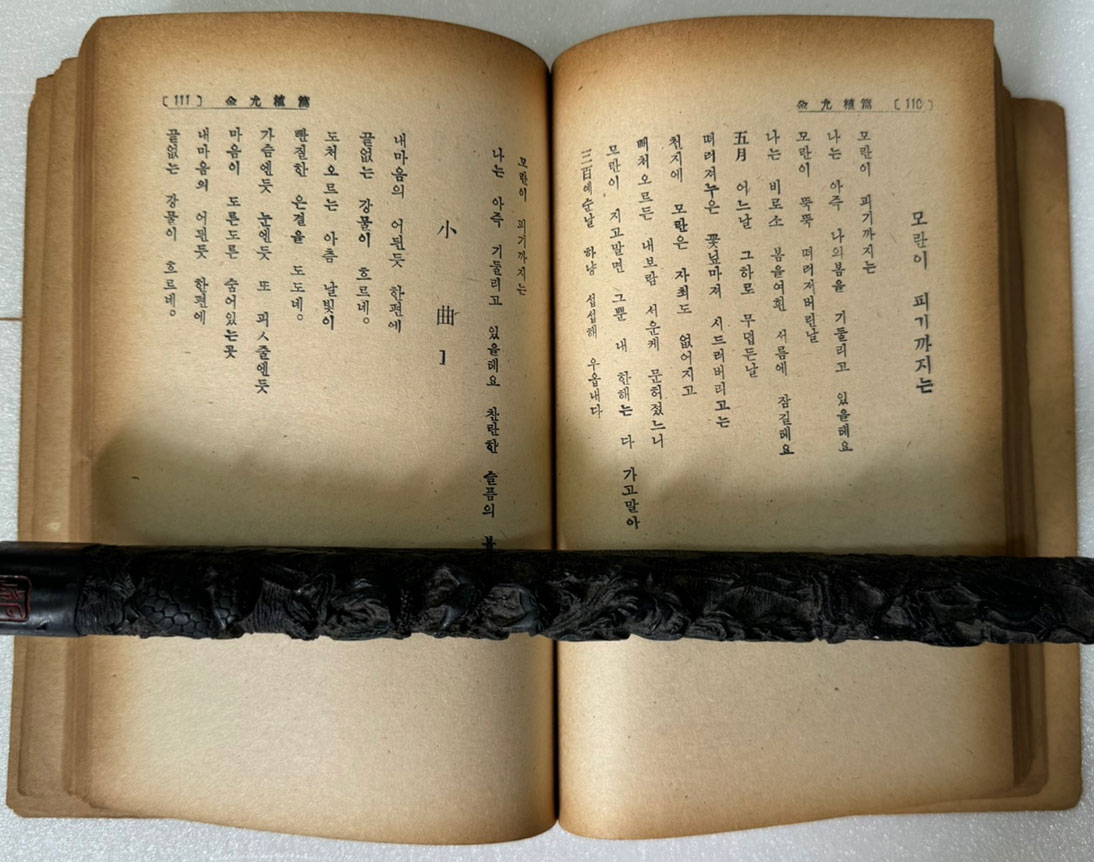 金允植篇 〔110〕
모란이 피기까지는
모란이 피기까지는
나는 아즉 나의봄을 기둘리고 있을테요
모란이 뚝뚝 떠러저버린날
나는 비로소 봄을여흰 서름에 잠길테요
五月 어느날 그하로 무덥든날
떠러져누은 꽃닢마져 시드러버리고는
천지에 모란은 자최도 없어지고
뻐처오르든 내보람 서운케 문허졌느니
모란이 지고말면 그뿐 내 한해는 다 가고말아
三百예순날 하냥 섭섭해 우옵내다
〔111〕 金允植篇
모란이 피기까지는
나는 아즉 기둘리고 있을테요 찬란한 슬픔의
小曲 1
내마음의 어딘듯 한편에
끝없는 강물이 흐르네。
도처오르는 아츰 날빛이
빤질한 은결을 도도네。
가슴엔듯 눈엔듯 또 피ㅅ줄엔듯
마음이 도른도른 숨어있는곳
내마음의 어딘듯 한편에
끝없는 강물이 흐르네。